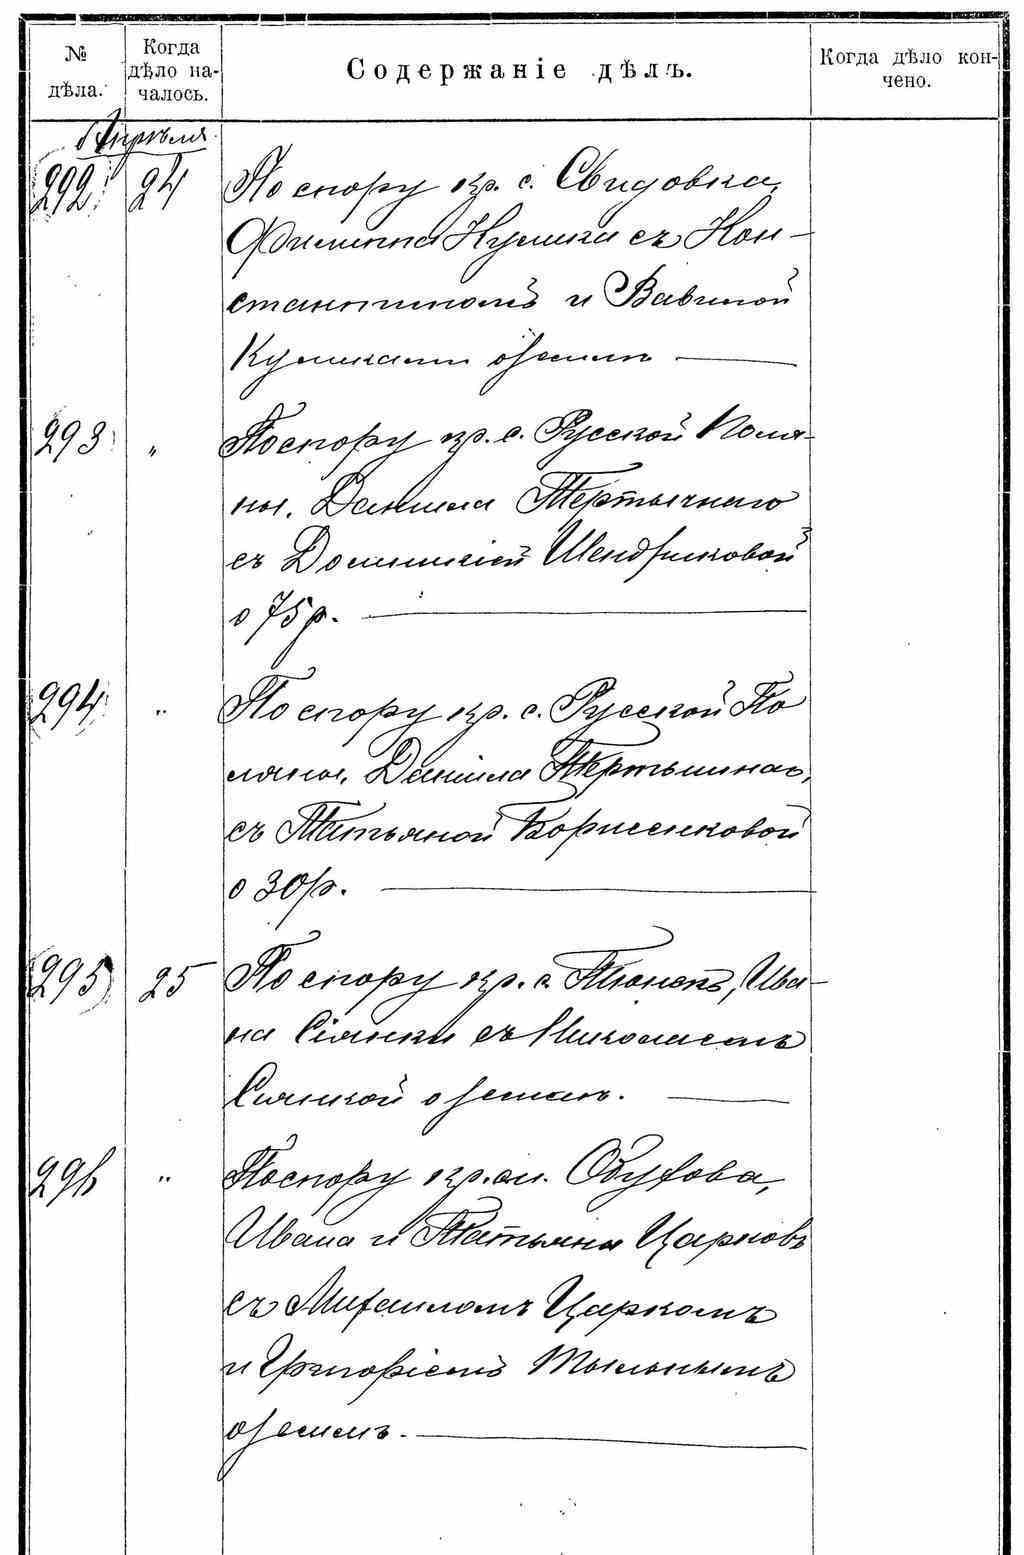 № дѣла. Когда дѣло началось. Содержаніе дѣлъ. Когда дѣло кончено.
Апрѣля
292 24 По спору кр. с. Свидовка,
Филиппа Кулика съ Кон-
стантиномъ и Вавилой
Куликами о землѣ
293 " По спору кр. с. Русской Поля-
ны, Данила Тертычнаго
съ Доминикіей Шендриковой
о 75 р.
294 " По спору кр. с. Русской По
ляны, Данила
съ Татьяной Борисенковой
о 30 р.
295 25 По спору кр. с. Ива-
на Сіянки съ Николаемъ
Сіянкой о землѣ.
296 " По спору кр. м.
Ивана и Татьяны Царковъ
съ Михаиломъ Царкомъ
и Григоріемъ
о землѣ.